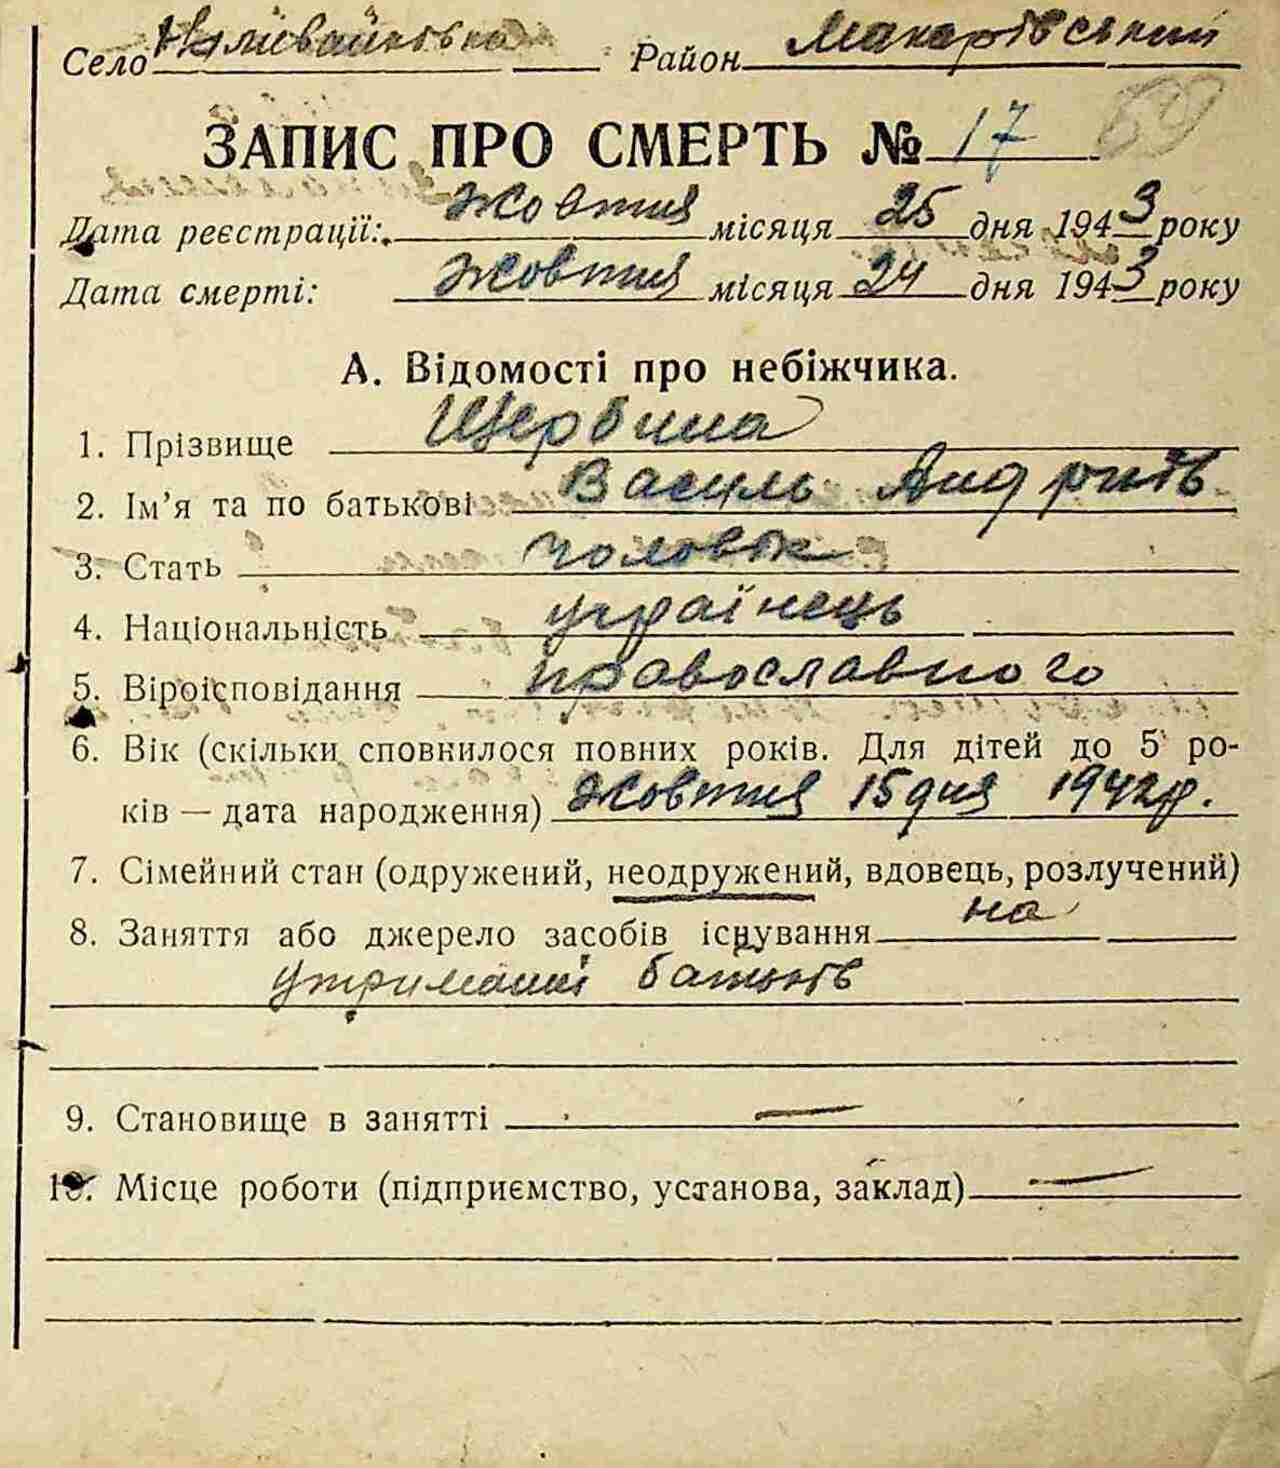 Село Наливайківка Район Макарівський
ЗАПИС ПРО СМЕРТЬ № 17
Дата реєстрації: жовтня місяця 25 дня 1943 року
Дата смерті: жовтня місяця 24 дня 1943 року
А. Відомості про небіжчика.
1. Прізвище Щербина
2. Ім’я та по батькові Василь
3. Стать чоловік
4. Національність українець
5. Віроісповідання православного
6. Вік (скільки сповнилося повних років. Для дітей до 5 ро-
ків — дата народження) жовтня 15 дня 1942 р.
7. Сімейний стан (одружений, неодружений, вдовець, розлучений)
8. Заняття або джерело засобів існування на
утриманні батьків
9. Становище в занятті —
10. Місце роботи (підприємство, установа, заклад) —